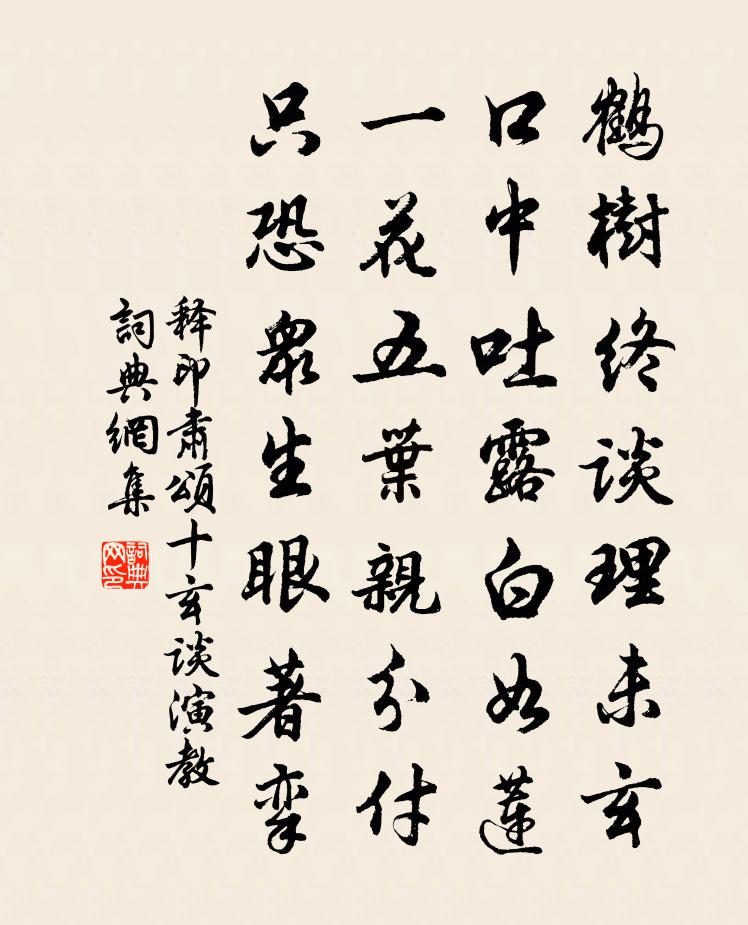 鶴樹終談理未玄
口中吐露白如蓮
一花五葉親分付
只恐眾生眼著挛
释印肅頌十玄談演教
詞典網集
詞典网印